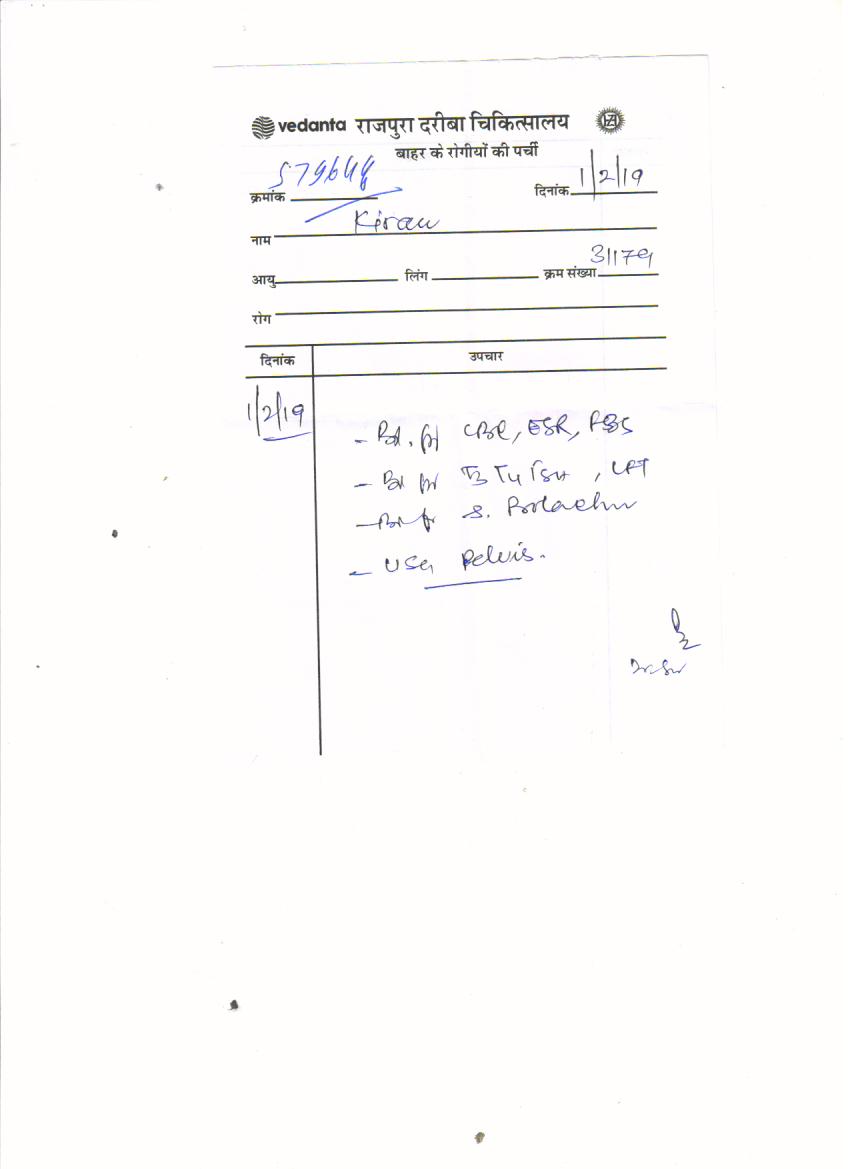 vedanta राजपुरा दरीबा चिकित्सालय
बाहर के रोगीयों की पर्ची
क्रमांक 579644 दिनांक 1/2/19
नाम Kiran
आयु लिंग क्रम संख्या 31179
रोग
दिनांक उपचार
1/2/19
- Bl. for CBC, ESR, FBS
- Bl for T3 T4 TSH, LFT
- Bl for S. Prolactin
- USG Pelvis.